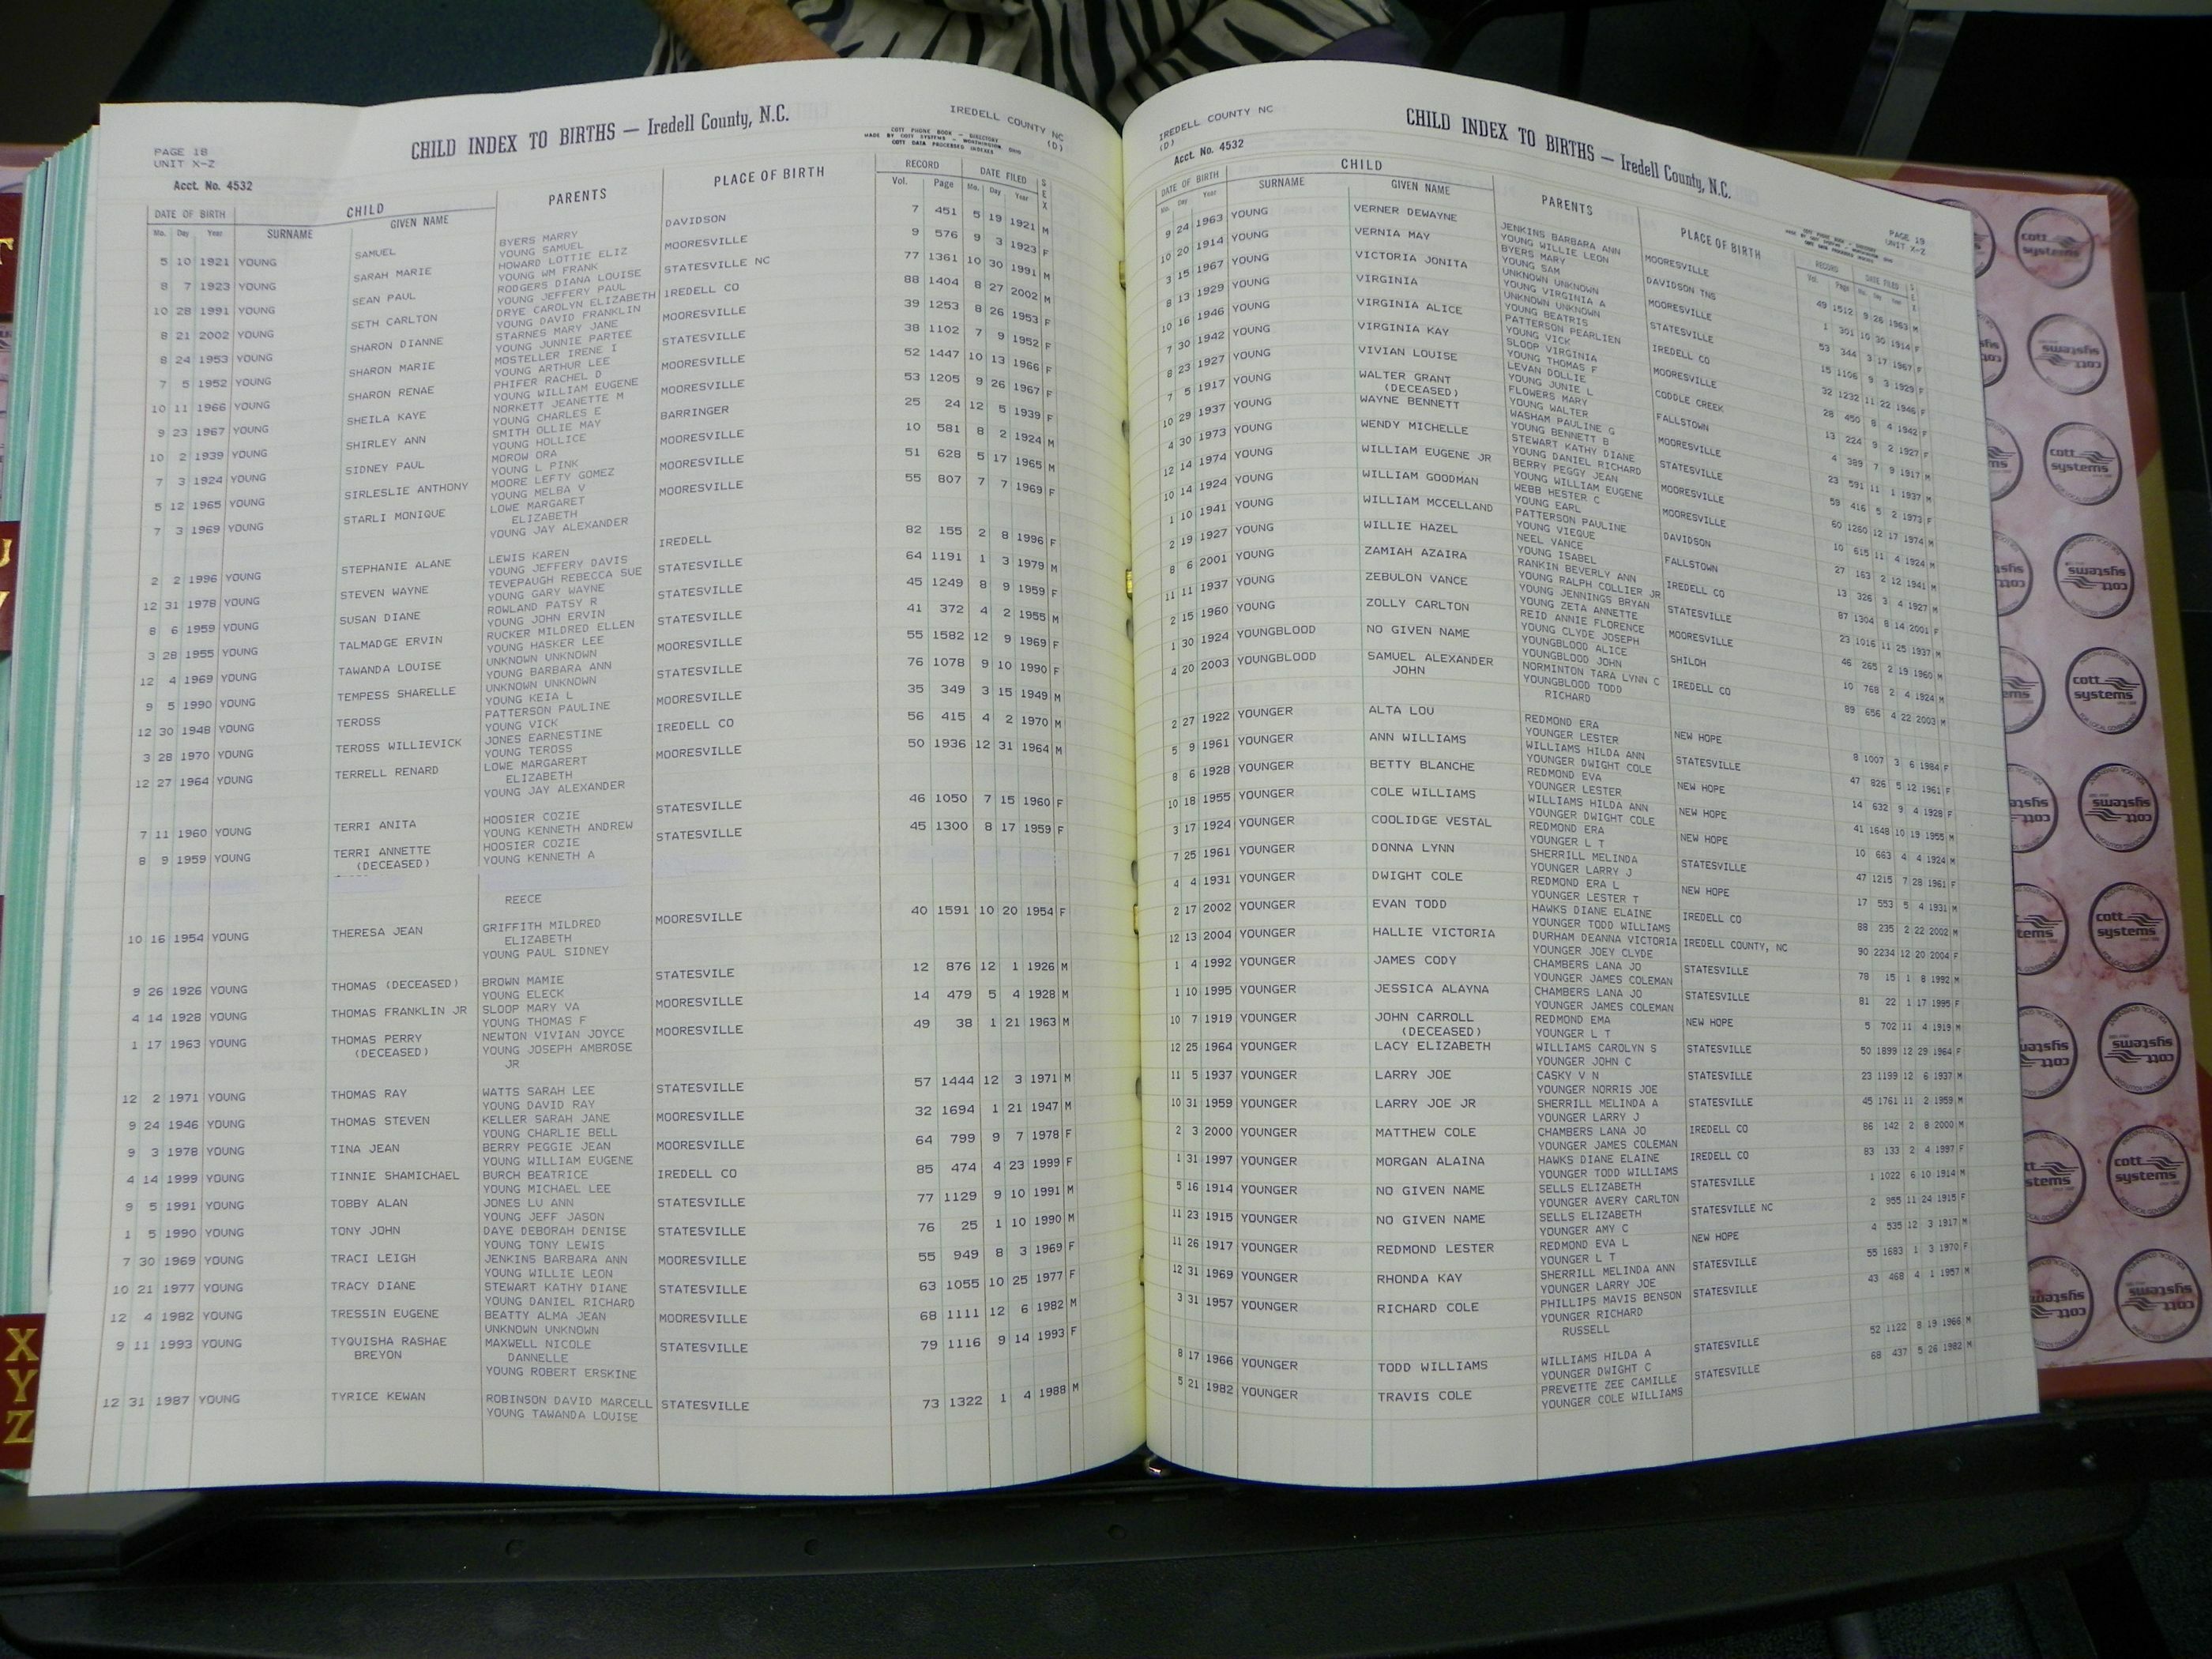 IREDELL COUNTY NC
(D)
CHILD INDEX TO BIRTHS — Iredell County, N.C.
COTT PHONE BOOK - DIRECTORY
MADE BY COTT SYSTEMS - WORTHINGTON, OHIO
COTT DATA PROCESSED INDEXES
PAGE 18
UNIT X-Z
Acct. No. 4532
DATE OF BIRTH CHILD PARENTS PLACE OF BIRTH RECORD DATE FILED SEX
Mo. Day Year SURNAME GIVEN NAME Vol. Page Mo. Day Year
5 10 1921 YOUNG SAMUEL BYERS MARRY DAVIDSON 7 451 5 19 1921 M
YOUNG SAMUEL
8 7 1923 YOUNG SARAH MARIE HOWARD LOTTIE ELIZ MOORESVILLE 9 576 9 3 1923 F
YOUNG WM FRANK
10 28 1991 YOUNG SEAN PAUL RODGERS DIANA LOUISE STATESVILLE NC 77 1361 10 30 1991 M
YOUNG JEFFERY PAUL
8 21 2002 YOUNG SETH CARLTON DRYE CAROLYN ELIZABETH IREDELL CO 88 1404 8 27 2002 M
YOUNG DAVID FRANKLIN
8 24 1953 YOUNG SHARON DIANNE STARNES MARY JANE MOORESVILLE 39 1253 8 26 1953 F
YOUNG JUNNIE PARTEE
7 5 1952 YOUNG SHARON MARIE MOSTELLER IRENE I STATESVILLE 38 1102 7 9 1952 F
YOUNG ARTHUR LEE
10 11 1966 YOUNG SHARON RENAE PHIFER RACHEL D MOORESVILLE 52 1447 10 13 1966 F
YOUNG WILLIAM EUGENE
9 23 1967 YOUNG SHEILA KAYE NORKETT JEANETTE M MOORESVILLE 53 1205 9 26 1967 F
YOUNG CHARLES E
10 2 1939 YOUNG SHIRLEY ANN SMITH OLLIE MAY BARRINGER 25 24 12 5 1939 F
YOUNG HOLLICE
7 3 1924 YOUNG SIDNEY PAUL MOROW ORA MOORESVILLE 10 581 8 2 1924 M
YOUNG L PINK
5 12 1965 YOUNG SIRLESLIE ANTHONY MOORE LEFTY GOMEZ MOORESVILLE 51 628 5 17 1965 M
YOUNG MELBA V
7 3 1969 YOUNG STARLI MONIQUE LOWE MARGARET MOORESVILLE 55 807 7 7 1969 F
ELIZABETH
YOUNG JAY ALEXANDER
2 2 1996 YOUNG STEPHANIE ALANE LEWIS KAREN IREDELL 82 155 2 8 1996 F
YOUNG JEFFERY DAVIS
12 31 1978 YOUNG STEVEN WAYNE TEVEPAUGH REBECCA SUE STATESVILLE 64 1191 1 3 1979 M
YOUNG GARY WAYNE
8 6 1959 YOUNG SUSAN DIANE ROWLAND PATSY R STATESVILLE 45 1249 8 9 1959 F
YOUNG JOHN ERVIN
3 28 1955 YOUNG TALMADGE ERVIN RUCKER MILDRED ELLEN STATESVILLE 41 372 4 2 1955 M
YOUNG HASKER LEE
12 4 1969 YOUNG TAWANDA LOUISE UNKNOWN UNKNOWN MOORESVILLE 55 1582 12 9 1969 F
YOUNG BARBARA ANN
9 5 1990 YOUNG TEMPESS SHARELLE UNKNOWN UNKNOWN STATESVILLE 76 1078 9 10 1990 F
YOUNG KEIA L
12 30 1948 YOUNG TEROSS PATTERSON PAULINE MOORESVILLE 35 349 3 15 1949 M
YOUNG VICK
3 28 1970 YOUNG TEROSS WILLIEVICK JONES EARNESTINE IREDELL CO 56 415 4 2 1970 M
YOUNG TEROSS
12 27 1964 YOUNG TERRELL RENARD LOWE MARGARERT MOORESVILLE 50 1936 12 31 1964 M
ELIZABETH
YOUNG JAY ALEXANDER
7 11 1960 YOUNG TERRI ANITA HOOSIER COZIE STATESVILLE 46 1050 7 15 1960 F
YOUNG KENNETH ANDREW
8 9 1959 YOUNG TERRI ANNETTE HOOSIER COZIE STATESVILLE 45 1300 8 17 1959 F
(DECEASED) YOUNG KENNETH A
REECE
10 16 1954 YOUNG THERESA JEAN GRIFFITH MILDRED MOORESVILLE 40 1591 10 20 1954 F
ELIZABETH
YOUNG PAUL SIDNEY
9 26 1926 YOUNG THOMAS (DECEASED) BROWN MAMIE STATESVILE 12 876 12 1 1926 M
YOUNG ELECK
4 14 1928 YOUNG THOMAS FRANKLIN JR SLOOP MARY VA MOORESVILLE 14 479 5 4 1928 M
YOUNG THOMAS F
1 17 1963 YOUNG THOMAS PERRY NEWTON VIVIAN JOYCE MOORESVILLE 49 38 1 21 1963 M
(DECEASED) YOUNG JOSEPH AMBROSE
JR
12 2 1971 YOUNG THOMAS RAY WATTS SARAH LEE STATESVILLE 57 1444 12 3 1971 M
YOUNG DAVID RAY
9 24 1946 YOUNG THOMAS STEVEN KELLER SARAH JANE MOORESVILLE 32 1694 1 21 1947 M
YOUNG CHARLIE BELL
9 3 1978 YOUNG TINA JEAN BERRY PEGGIE JEAN MOORESVILLE 64 799 9 7 1978 F
YOUNG WILLIAM EUGENE
4 14 1999 YOUNG TINNIE SHAMICHAEL BURCH BEATRICE IREDELL CO 85 474 4 23 1999 F
YOUNG MICHAEL LEE
9 5 1991 YOUNG TOBBY ALAN JONES LU ANN STATESVILLE 77 1129 9 10 1991 M
YOUNG JEFF JASON
1 5 1990 YOUNG TONY JOHN DAYE DEBORAH DENISE STATESVILLE 76 25 1 10 1990 M
YOUNG TONY LEWIS
7 30 1969 YOUNG TRACI LEIGH JENKINS BARBARA ANN MOORESVILLE 55 949 8 3 1969 F
YOUNG WILLIE LEON
10 21 1977 YOUNG TRACY DIANE STEWART KATHY DIANE STATESVILLE 63 1055 10 25 1977 F
YOUNG DANIEL RICHARD
12 4 1982 YOUNG TRESSIN EUGENE BEATTY ALMA JEAN MOORESVILLE 68 1111 12 6 1982 M
UNKNOWN UNKNOWN
9 11 1993 YOUNG TYQUISHA RASHAE MAXWELL NICOLE STATESVILLE 79 1116 9 14 1993 F
BREYON DANNELLE
YOUNG ROBERT ERSKINE
12 31 1987 YOUNG TYRICE KEWAN ROBINSON DAVID MARCELL STATESVILLE 73 1322 1 4 1988 M
YOUNG TAWANDA LOUISE
IREDELL COUNTY NC
(D)
Acct. No. 4532
CHILD INDEX TO BIRTHS — Iredell County, N.C.
PAGE 19
UNIT X-Z
DATE OF BIRTH CHILD PARENTS PLACE OF BIRTH RECORD DATE FILED SEX
Mo. Day Year SURNAME GIVEN NAME Vol. Page Mo. Day Year
9 24 1963 YOUNG VERNER DEWAYNE JENKINS BARBARA ANN MOORESVILLE 49 1512 9 26 1963 M
YOUNG WILLIE LEON
10 20 1914 YOUNG VERNIA MAY BYERS MARY DAVIDSON TNS 1 301 10 30 1914 F
YOUNG SAM
3 15 1967 YOUNG VICTORIA JONITA UNKNOWN UNKNOWN MOORESVILLE 53 344 3 17 1967 F
YOUNG VIRGINIA A
8 13 1929 YOUNG VIRGINIA UNKNOWN UNKNOWN STATESVILLE 15 1106 9 3 1929 F
YOUNG BEATRIS
10 16 1946 YOUNG VIRGINIA ALICE PATTERSON PEARLIEN IREDELL CO 32 1232 11 22 1946 F
YOUNG VICK
7 30 1942 YOUNG VIRGINIA KAY SLOOP VIRGINIA MOORESVILLE 28 450 8 4 1942 F
YOUNG THOMAS F
8 23 1927 YOUNG VIVIAN LOUISE LEVAN DOLLIE CODDLE CREEK 13 224 9 2 1927 F
YOUNG JUNIE L
7 5 1917 YOUNG WALTER GRANT FLOWERS MARY FALLSTOWN 4 389 7 9 1917 M
(DECEASED) YOUNG WALTER
10 29 1937 YOUNG WAYNE BENNETT WASHAM PAULINE G MOORESVILLE 23 591 11 1 1937 M
YOUNG BENNETT B
4 30 1973 YOUNG WENDY MICHELLE STEWART KATHY DIANE STATESVILLE 59 416 5 2 1973 F
YOUNG DANIEL RICHARD
12 14 1974 YOUNG WILLIAM EUGENE JR BERRY PEGGY JEAN MOORESVILLE 60 1260 12 17 1974 M
YOUNG WILLIAM EUGENE
10 14 1924 YOUNG WILLIAM GOODMAN WEBB HESTER C MOORESVILLE 10 615 11 4 1924 M
YOUNG EARL
1 10 1941 YOUNG WILLIAM MCCELLAND PATTERSON PAULINE DAVIDSON 27 163 2 12 1941 M
YOUNG VIEQUE
2 19 1927 YOUNG WILLIE HAZEL NEEL VANCE FALLSTOWN 13 326 3 4 1927 M
YOUNG ISABEL
8 6 2001 YOUNG ZAMIAH AZAIRA RANKIN BEVERLY ANN IREDELL CO 87 1304 8 14 2001 F
YOUNG RALPH COLLIER JR
11 11 1937 YOUNG ZEBULON VANCE YOUNG JENNINGS BRYAN STATESVILLE 23 1016 11 25 1937 M
YOUNG ZETA ANNETTE
2 15 1960 YOUNG ZOLLY CARLTON REID ANNIE FLORENCE MOORESVILLE 46 265 2 19 1960 M
YOUNG CLYDE JOSEPH
1 30 1924 YOUNGBLOOD NO GIVEN NAME YOUNGBLOOD ALICE SHILOH 10 768 2 4 1924 M
YOUNGBLOOD JOHN
4 20 2003 YOUNGBLOOD SAMUEL ALEXANDER NORMINTON TARA LYNN C IREDELL CO 89 656 4 22 2003 M
JOHN YOUNGBLOOD TODD
RICHARD
2 27 1922 YOUNGER ALTA LOU REDMOND ERA NEW HOPE 8 1007 3 6 1984 F
YOUNGER LESTER
5 9 1961 YOUNGER ANN WILLIAMS WILLIAMS HILDA ANN STATESVILLE 47 826 5 12 1961 F
YOUNGER DWIGHT COLE
8 6 1928 YOUNGER BETTY BLANCHE REDMOND EVA NEW HOPE 14 632 9 4 1928 F
YOUNGER LESTER
10 18 1955 YOUNGER COLE WILLIAMS WILLIAMS HILDA ANN NEW HOPE 41 1648 10 19 1955 M
YOUNGER DWIGHT COLE
3 17 1924 YOUNGER COOLIDGE VESTAL REDMOND ERA NEW HOPE 10 663 4 4 1924 M
YOUNGER L T
7 25 1961 YOUNGER DONNA LYNN SHERRILL MELINDA STATESVILLE 47 1215 7 28 1961 F
YOUNGER LARRY J
4 4 1931 YOUNGER DWIGHT COLE REDMOND ERA L NEW HOPE 17 553 5 4 1931 M
YOUNGER LESTER T
2 17 2002 YOUNGER EVAN TODD HAWKS DIANE ELAINE IREDELL CO 88 235 2 22 2002 M
YOUNGER TODD WILLIAMS
12 13 2004 YOUNGER HALLIE VICTORIA DURHAM DEANNA VICTORIA IREDELL COUNTY, NC 90 2234 12 20 2004 F
YOUNGER JOEY CLYDE
1 4 1992 YOUNGER JAMES CODY CHAMBERS LANA JO STATESVILLE 78 15 1 8 1992 M
YOUNGER JAMES COLEMAN
1 10 1995 YOUNGER JESSICA ALAYNA CHAMBERS LANA JO STATESVILLE 81 22 1 17 1995 F
YOUNGER JAMES COLEMAN
10 7 1919 YOUNGER JOHN CARROLL REDMOND EMA NEW HOPE 5 702 11 4 1919 M
(DECEASED) YOUNGER L T
12 25 1964 YOUNGER LACY ELIZABETH WILLIAMS CAROLYN S STATESVILLE 50 1899 12 29 1964 F
YOUNGER JOHN C
11 5 1937 YOUNGER LARRY JOE CASKY V N STATESVILLE 23 1199 12 6 1937 M
YOUNGER NORRIS JOE
10 31 1959 YOUNGER LARRY JOE JR SHERRILL MELINDA A STATESVILLE 45 1761 11 2 1959 M
YOUNGER LARRY J
2 3 2000 YOUNGER MATTHEW COLE CHAMBERS LANA JO IREDELL CO 86 142 2 8 2000 M
YOUNGER JAMES COLEMAN
1 31 1997 YOUNGER MORGAN ALAINA HAWKS DIANE ELAINE IREDELL CO 83 133 2 4 1997 F
YOUNGER TODD WILLIAMS
5 16 1914 YOUNGER NO GIVEN NAME SELLS ELIZABETH STATESVILLE 1 1022 6 10 1914 M
YOUNGER AVERY CARLTON
11 23 1915 YOUNGER NO GIVEN NAME SELLS ELIZABETH STATESVILLE NC 2 955 11 24 1915 F
YOUNGER AMY C
11 26 1917 YOUNGER REDMOND LESTER REDMOND EVA L NEW HOPE 4 535 12 3 1917 M
YOUNGER L T
12 31 1969 YOUNGER RHONDA KAY SHERRILL MELINDA ANN STATESVILLE 55 1683 1 3 1970 F
YOUNGER LARRY JOE
3 31 1957 YOUNGER RICHARD COLE PHILLIPS MAVIS BENSON STATESVILLE 43 468 4 1 1957 M
YOUNGER RICHARD
RUSSELL
8 17 1966 YOUNGER TODD WILLIAMS WILLIAMS HILDA A STATESVILLE 52 1122 8 19 1966 M
YOUNGER DWIGHT C
5 21 1982 YOUNGER TRAVIS COLE PREVETTE ZEE CAMILLE STATESVILLE 68 437 5 26 1982 M
YOUNGER COLE WILLIAMS
X
Y
Z
cott
systems